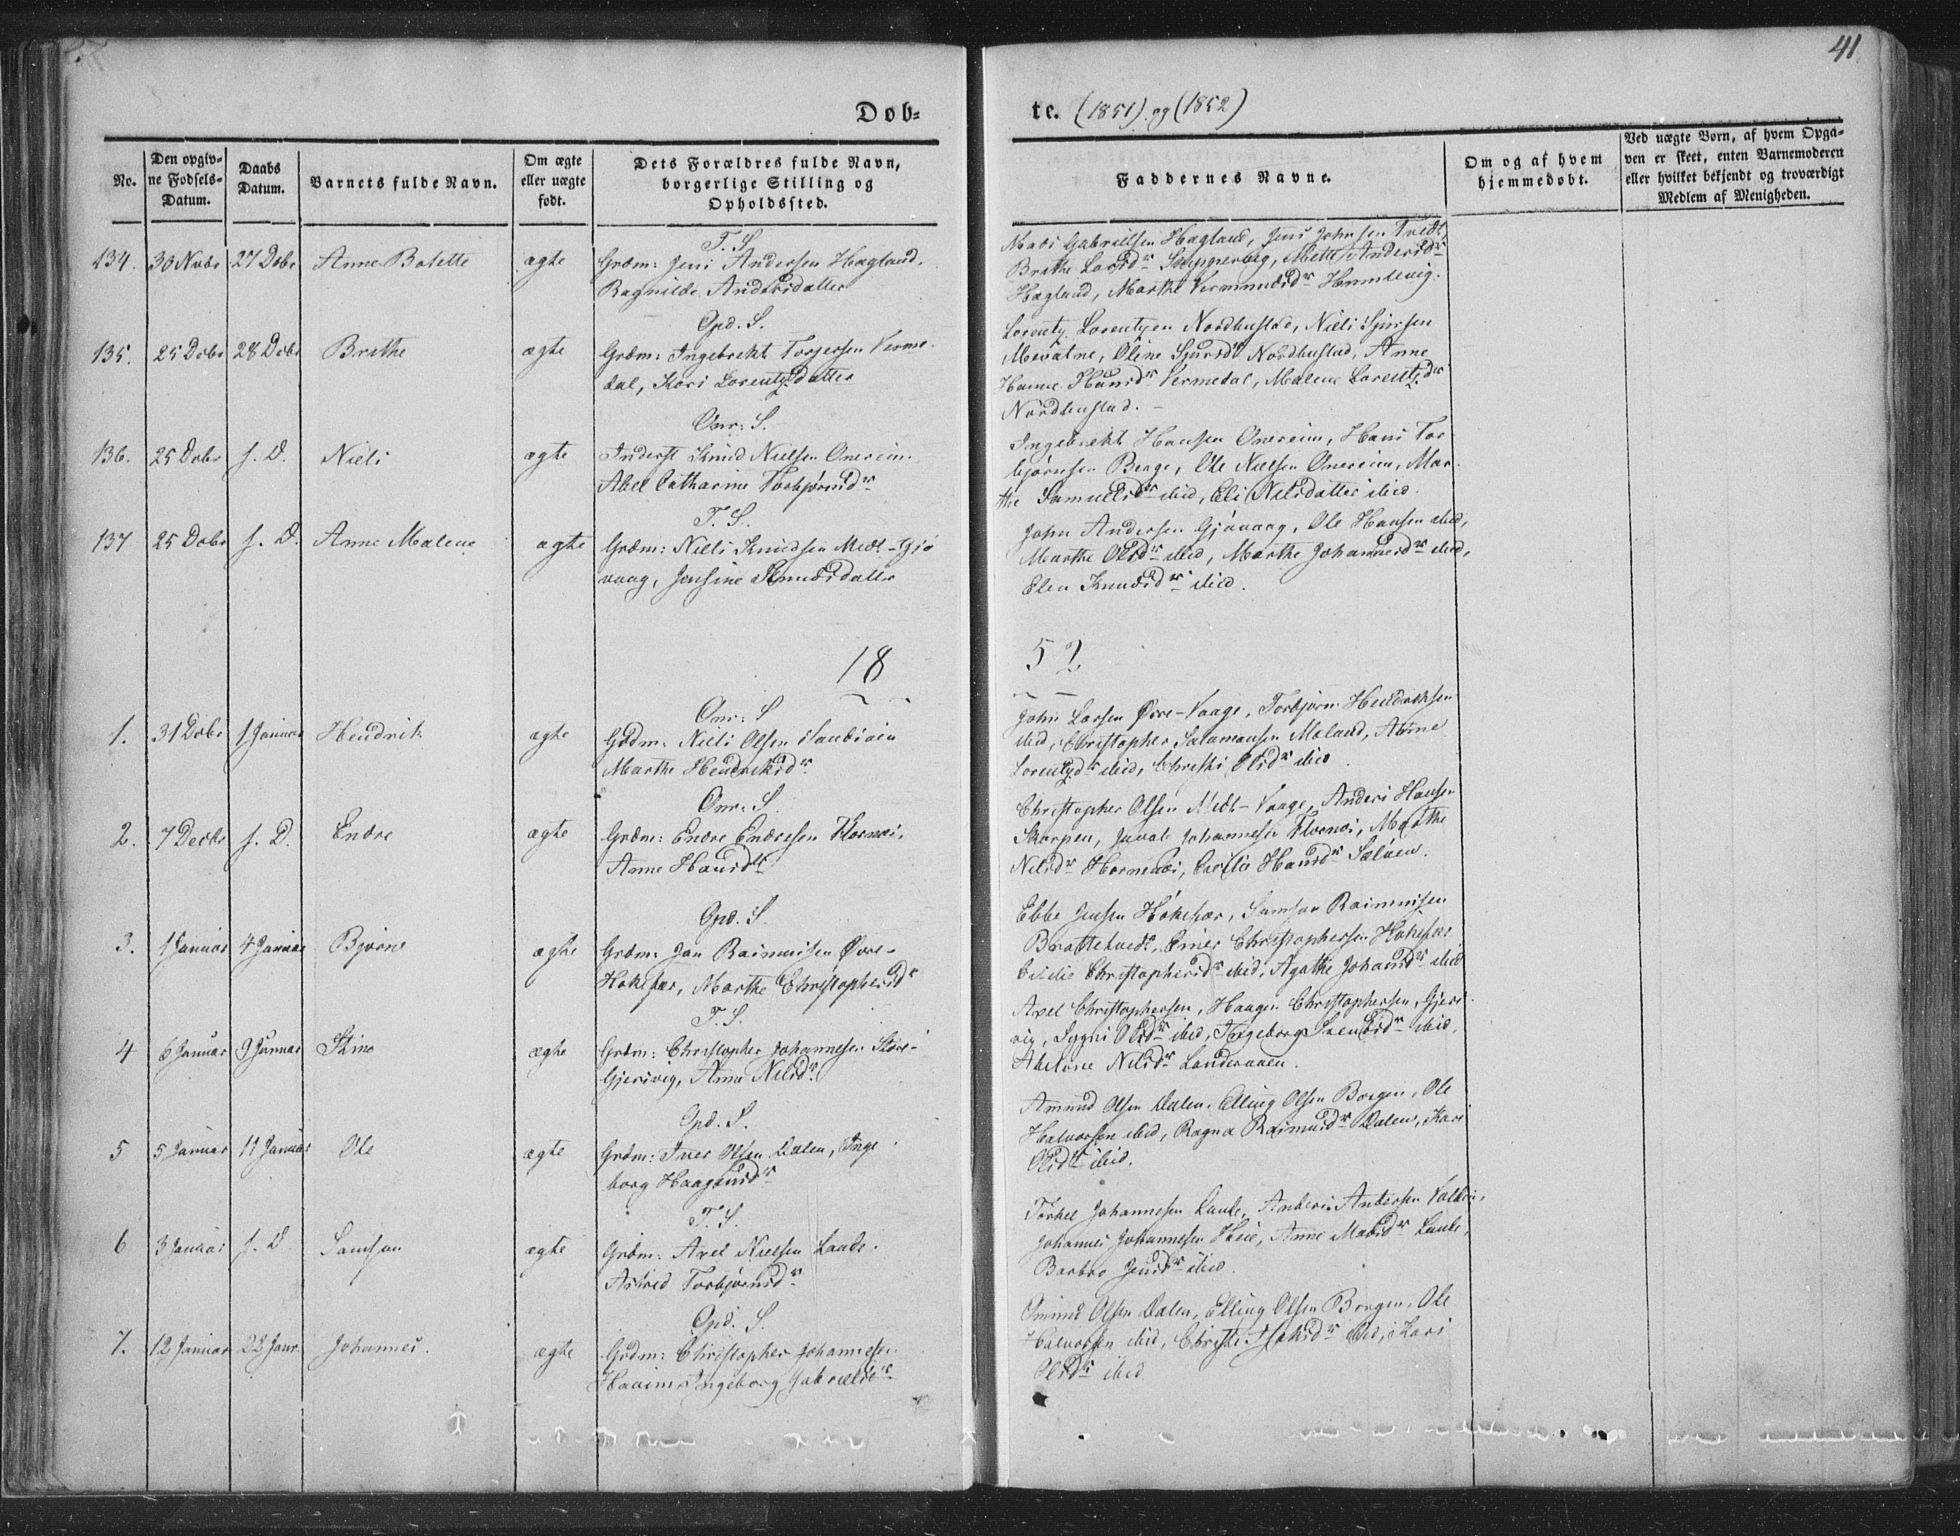 41.
Døb-
te. (1851) og (1852)
No.
Den opgiv-
ne Fødsels-
Datum.
Daabs
Datum.
Barnets fulde Navn.
Om ægte
eller uægte
født.
Dets Forældres fulde Navn,
borgerlige Stilling og
Opholdssted.
Faddernes Navne.
Om og af hvem
hjemmedøbt.
Ved uægte Børn, af hvem Opga-
ven er skeet, enten Barnemoderen
eller hvilket bekjendt og troværdigt
Medlem af Menigheden.
134. 30 Novbr 27 Dcbr Anne Bolette ægte
T. S.
Grdm: Jens Andersen Hægland,
Ragnilde Andersdatter
Mads Gabrielsen Hægland, Jens Johnsen Tvedt
Brithe Larsdr Mette Andersdr
Hægland, Marthe
135. 25 Dcbr 28 Dcbr Brithe ægte
Opd. S.
Grdm: Ingebrekt Torgersen Verme-
dal, Kari Lorentzdatter
Lorentz Lorentzen Nordhustad, Niels Sjursen
Mevatne, Oline Sjursdr Nordhustad, Anne
Hansdr Vermedal, Malene Lorentzdr
Nordhustad. -
136. 25 Dcbr s. D. Niels ægte
Onr: S.
Inderst Knud Nielsen Onereim
Abel Catharine Torbjørnsdr
Ingebrekt Hansen Onereim, Hans Tor
bjørnsen Berge, Ole Nielsen Onereim, Mar-
the Samuelsdr ibid, Eli Nilsdatter ibid.
137 25 Dcbr s. D. Anne Malene ægte
T. S.
Grdm: Niels Knudsen Medt-Gjø
vaag, Jensine Knudsdatter
John Andersen Gjøvaag, Ole Hansen ibid,
Marthe Olsdr ibid, Marthe Johannesdr ibid,
Elen Knudsdr ibid.
18
52
1. 31 Dcbr 1 Januar Hendrik ægte
Onr: S
Grdm: Niels Olsen
Marthe Hendriksdr
John Larsen Øvre-Vaage, Torbjørn Hendriksen
ibid, Christopher Salamonsen Moland, Anne
Lorentzdr ibid, Christi Olsdr ibid.
2. 7 Decbr s. D. Endre ægte
Onr: S.
Grdm: Endre Endresen
Anne Hansdr
Christopher Olsen Medt-Vaage, Anders Hansen
Skorpen, Johannesen Marthe
Nilsdr Hansdr Sæløen.
3. 1 Januar 4 Januar Bjørne ægte
Opd. S.
Grdm: Jan Rasmusen Øvre-
Hokefær, Marthe Christophersdr
Ebbe Jensen Hokefær, Samson Rasmusen
Brattetvedt, Christophersen Hokefær
Christophersdr ibid, Agathe Johansdr ibid
4 6 Januar 9 Januar Stine ægte
T. S.
Grdm: Christopher Johannesen Store-
Gjersvig, Anna Nilsdr.
Axel Christophersen, Haagen Christophersen, Gjers-
vig, Olsdr ibid, Ingeborg ibid,
Abelone Nilsdr Landeraaen.
5 5 Januar 11 Januar Ole ægte
Opd. S.
Grdm: Iver Olsen Dalen, Inge
borg Haagensdr
Amund Olsen Dalen, Elling Olsen Borgen, Ole
Halvorsen ibid, Ragna Rasmusdr Dalen, Kari
Olsdr ibid.
6 3 Januar s. D Samson ægte
T. S.
Grdm: Axel Nielsen Lande.
Astrid Torbjørnsdr
Torkel Johannesen Lande, Anders Andersen
Johannes Johannesen Heie, Anne Madsdr Lande,
Barbro Jensdr ibid.
7. 12 Januar 22 Janr. Johannes. ægte
Opd. S.
Grdm: Christopher Johannesen
Haaim, Ingeborg Gabrielsdr
Amund Olsen Dalen, Elling Olsen Borgen, Ole
Halvorsen ibid, Christi ibid, Kari
Olsdr ibid.